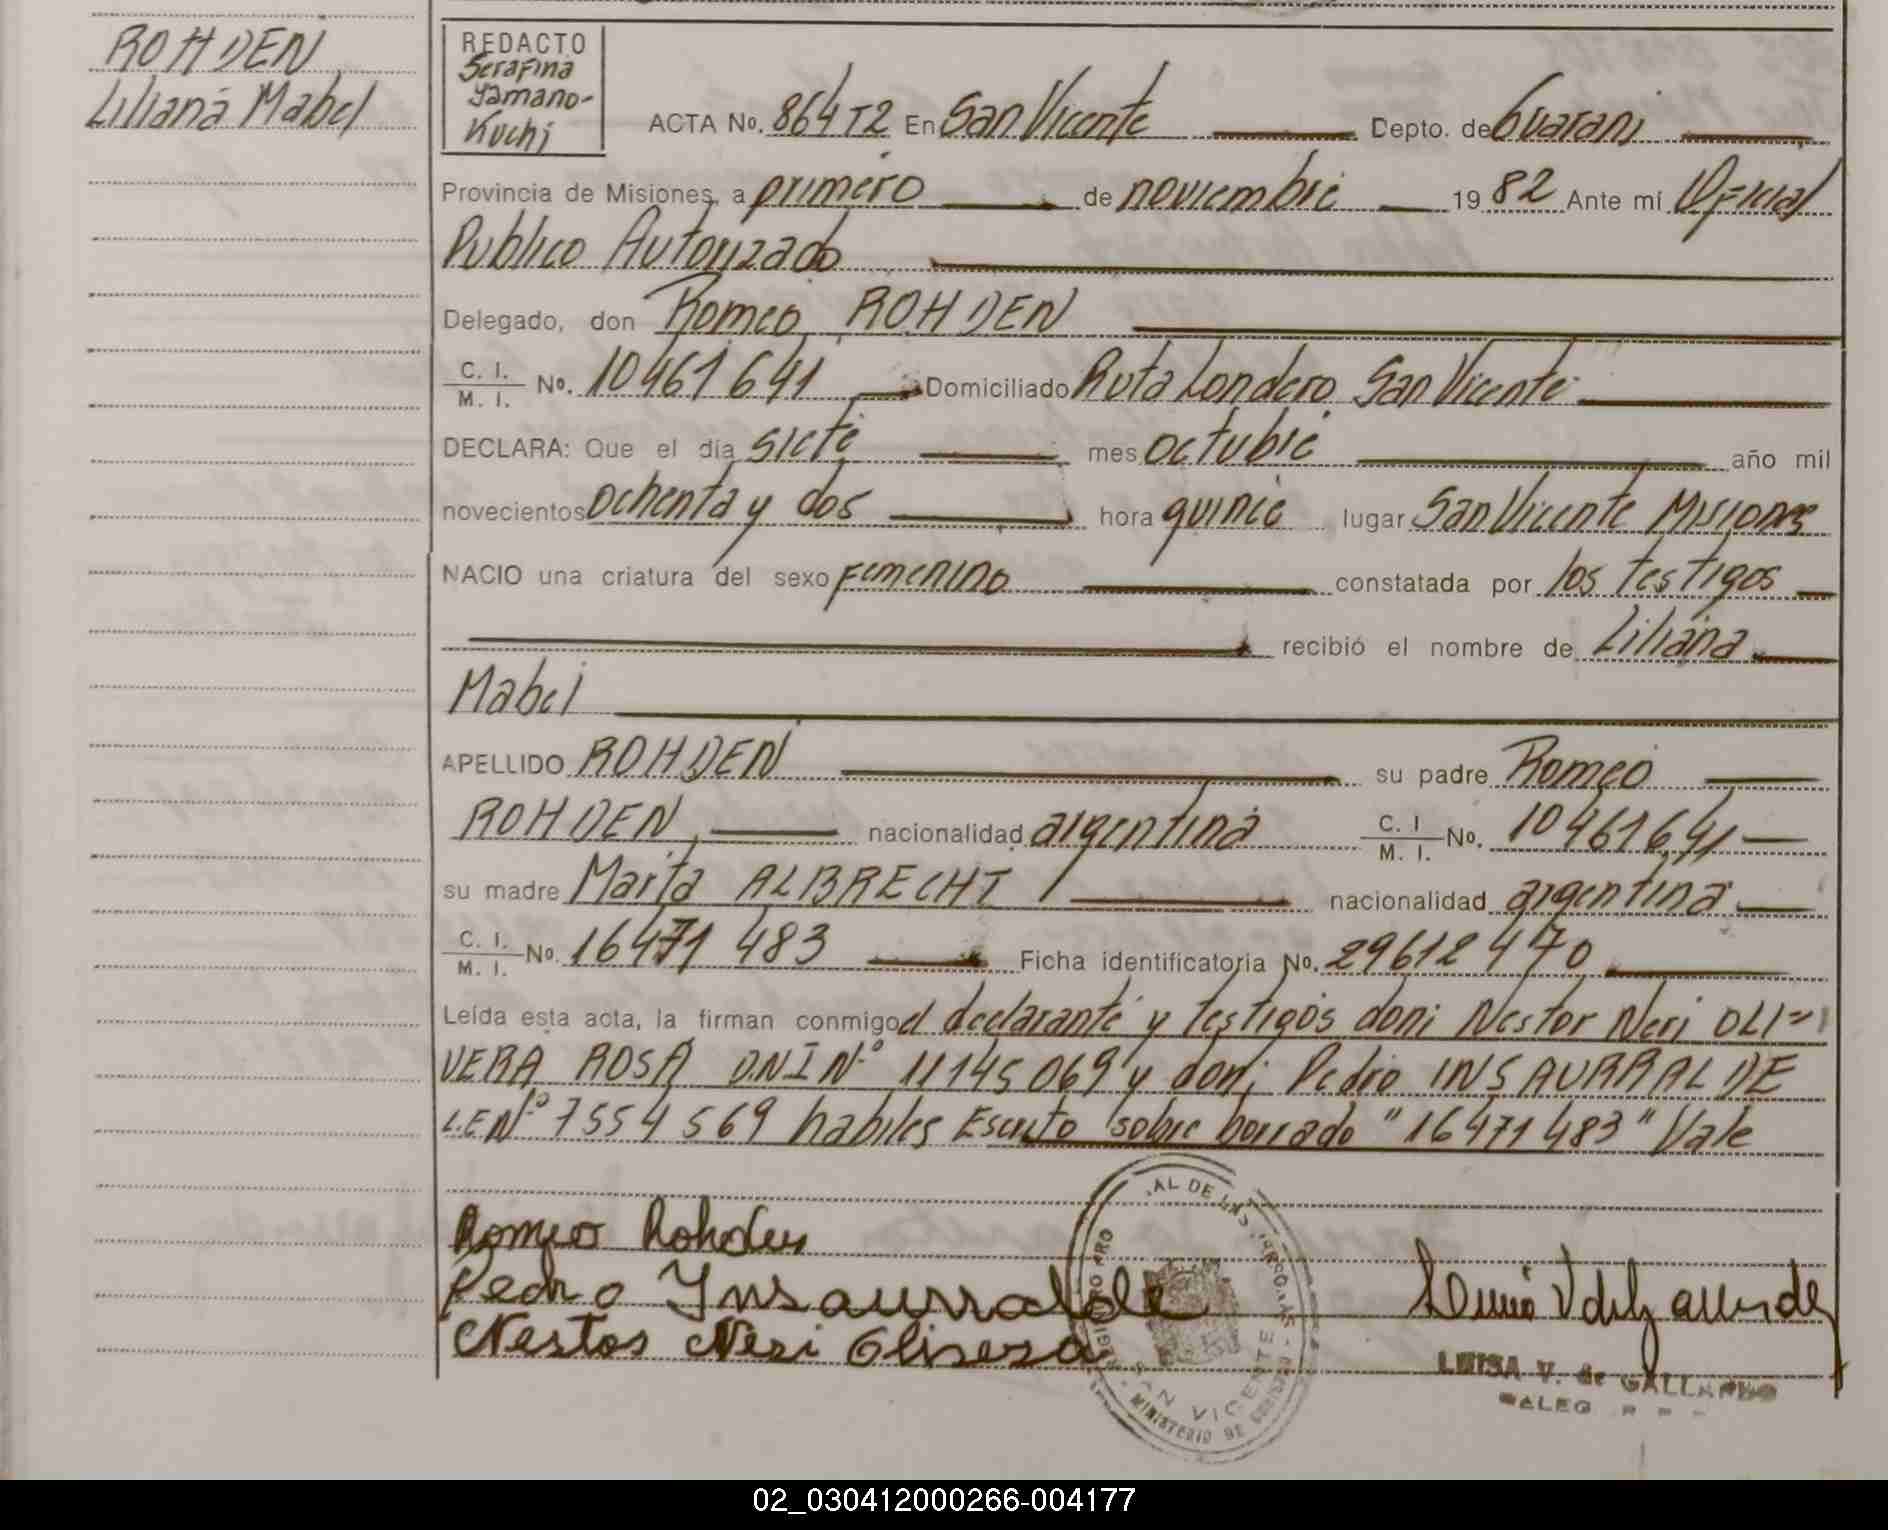 ROHDEN
Liliana Mabel
REDACTO
Serafina
Yamano-
Kuchi
ACTA No. 864 T2 En San Vicente Depto. de Guarani
Provincia de Misiones, a primero de noviembre 1982 Ante mi Oficial
Publico Autorizado
Delegado, don Romeo ROHDEN
C. I. / M. I. No. 10461641 Domiciliado Ruta Londero San Vicente
DECLARA: Que el día siete mes octubre año mil
novecientos ochenta y dos hora quince lugar San Vicente Misiones
NACIO una criatura del sexo femenino constatada por los testigos
recibió el nombre de Liliana
Mabel
APELLIDO ROHDEN su padre Romeo
ROHDEN, nacionalidad argentina C. I / M. I. No. 10461641
su madre Marta ALBRECHT nacionalidad argentina
C. I. / M. I. No. 16471483 Ficha identificatoria No. 29612470
Leída esta acta, la firman conmigo el declarante y testigos don: Nestor Neri OLI=
VERA ROSA D.N.I Nº 11145069 y don: Pedro INSAURRALDE
L.E Nº 7554569 habiles Escrito sobre borrado "16471483" Vale
Romeo Rohden
Pedro Ynsaurralde
Nestor Neri Olivera
LUISA V. de GALLARDO
SAN VICENTE
MINISTERIO DE
02_030412000266-004177